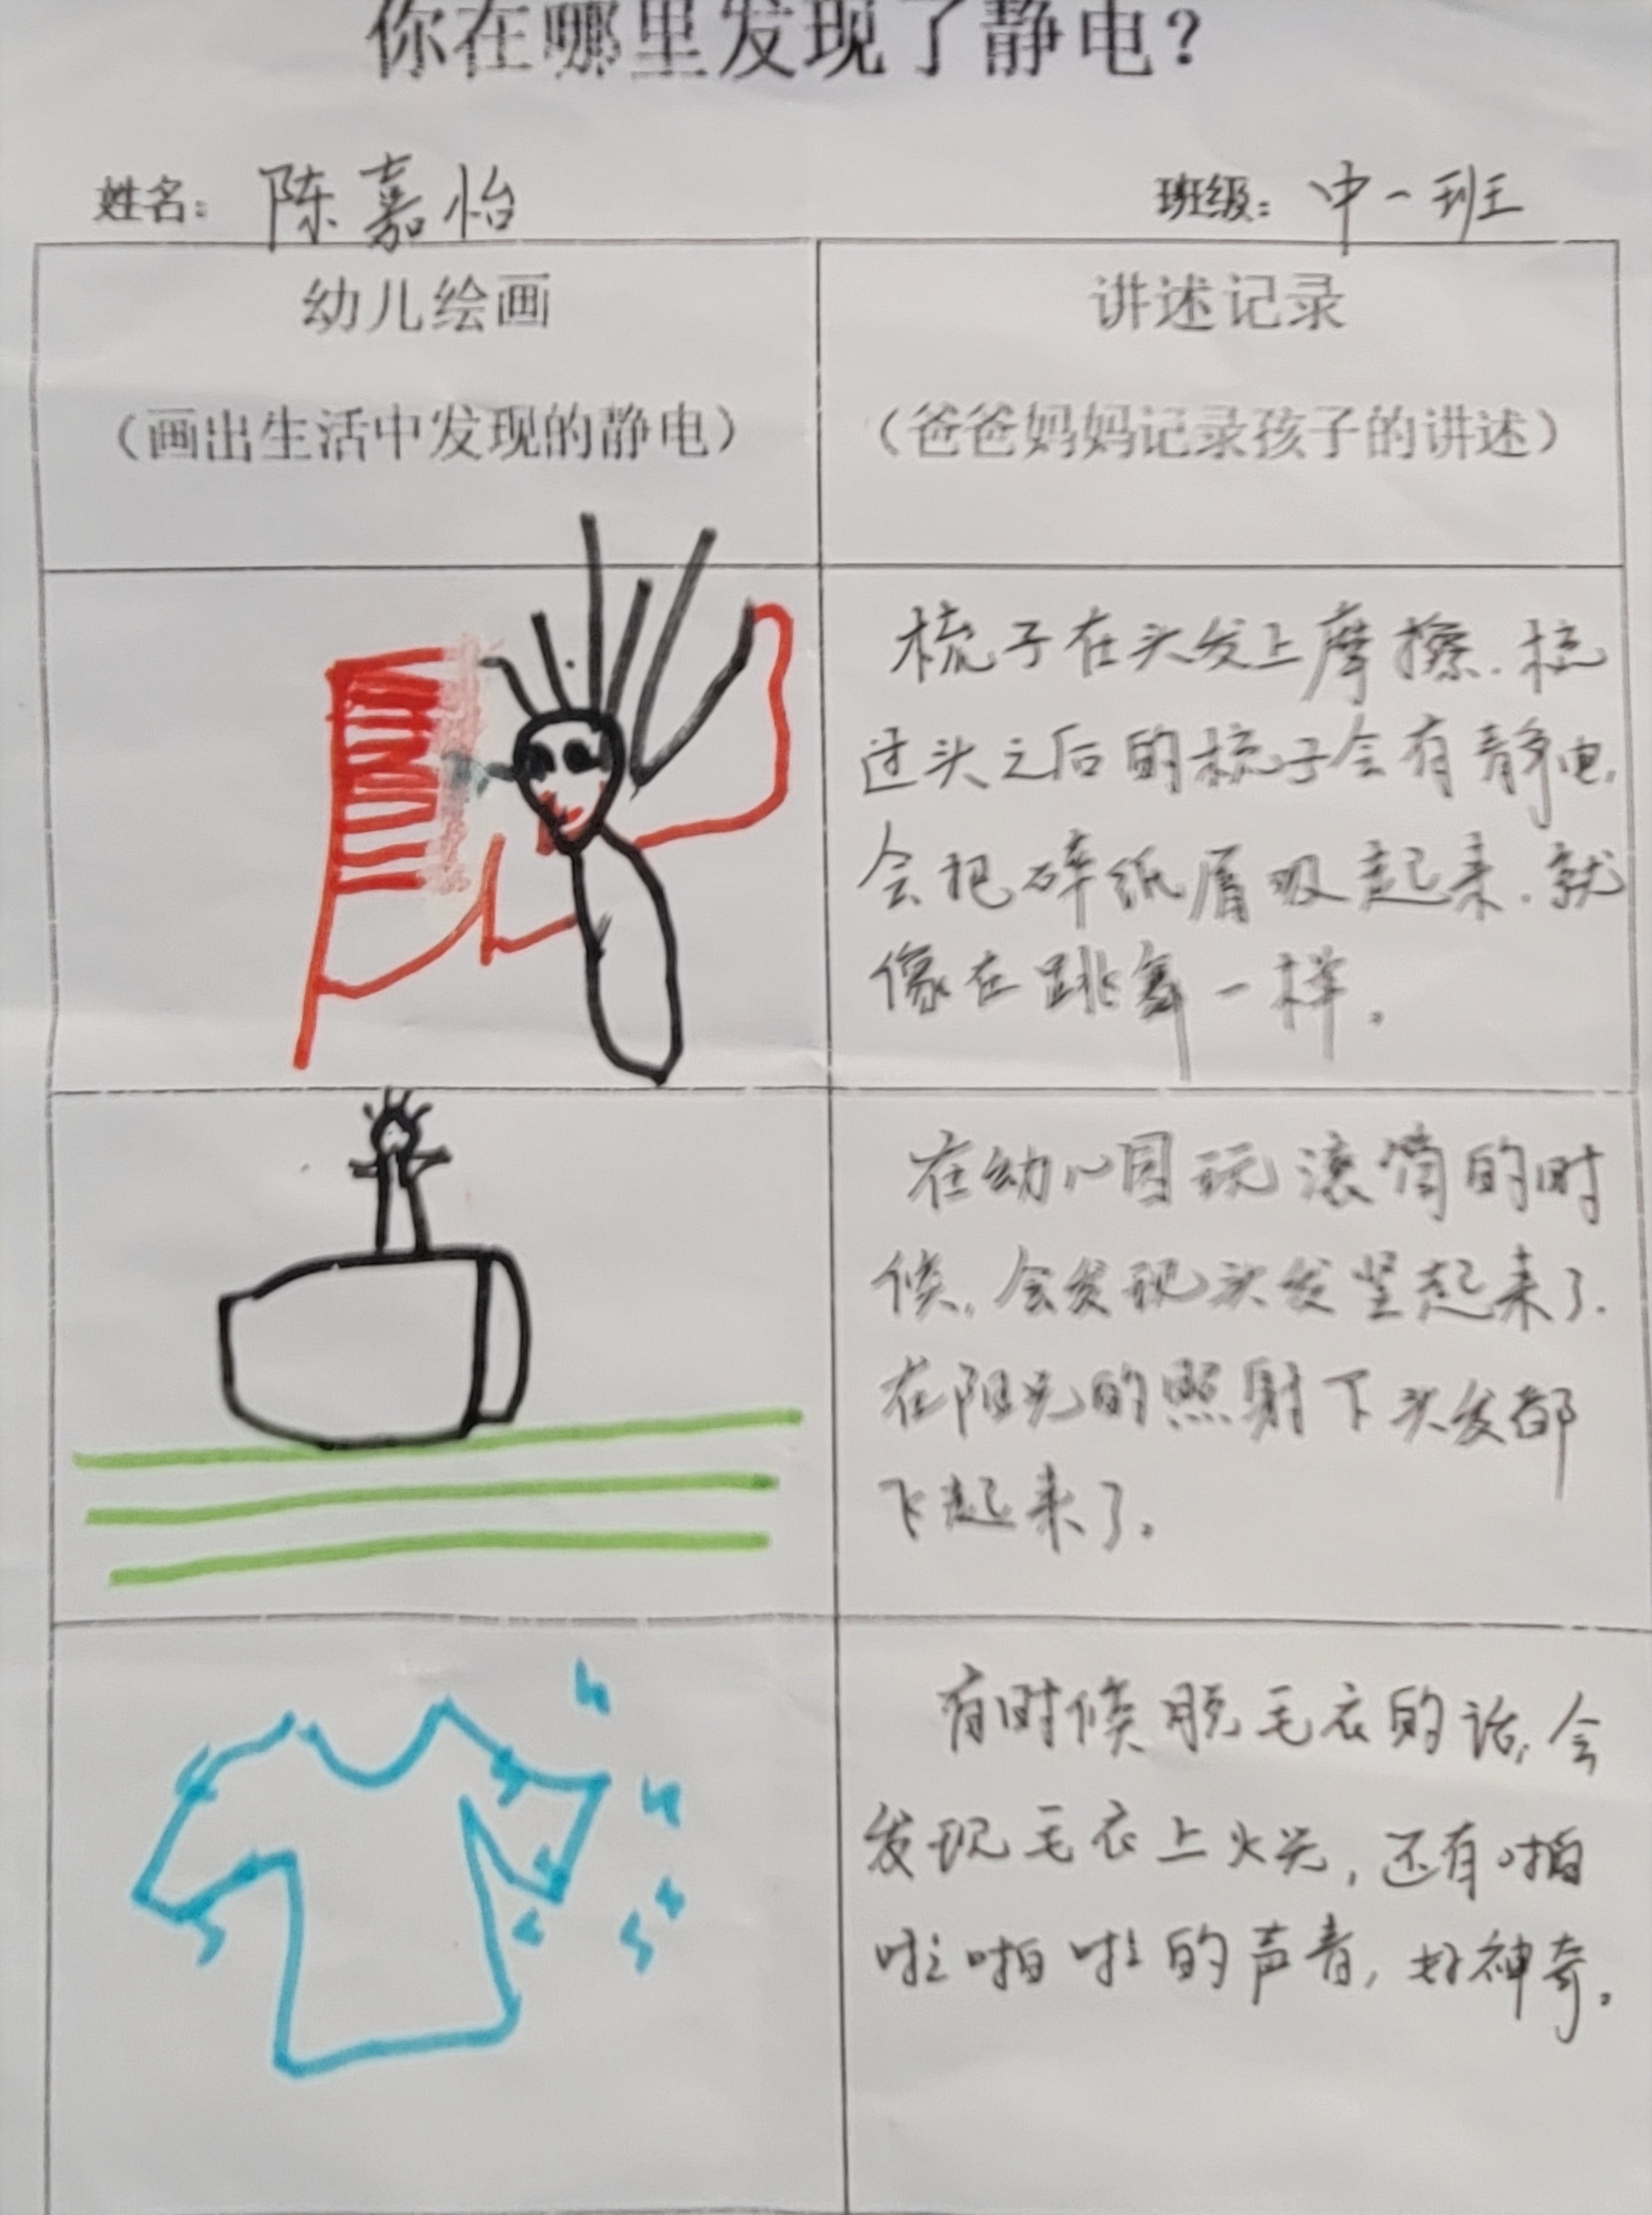 你在哪里发现了静电？
姓名：陈嘉怡 班级：中一班
幼儿绘画 讲述记录
（画出生活中发现的静电） （爸爸妈妈记录孩子的讲述）
梳子在头发上摩擦.梳
过头之后的梳子会有静电,
会把碎纸屑吸起来.就
像在跳舞一样。
在幼儿园玩滚筒的时
候,会发现头发竖起来了.
在阳光的照射下头发都
飞起来了。
有时候脱毛衣的话,会
发现毛衣上火光,还有啪
啦啪啦的声音,好神奇。